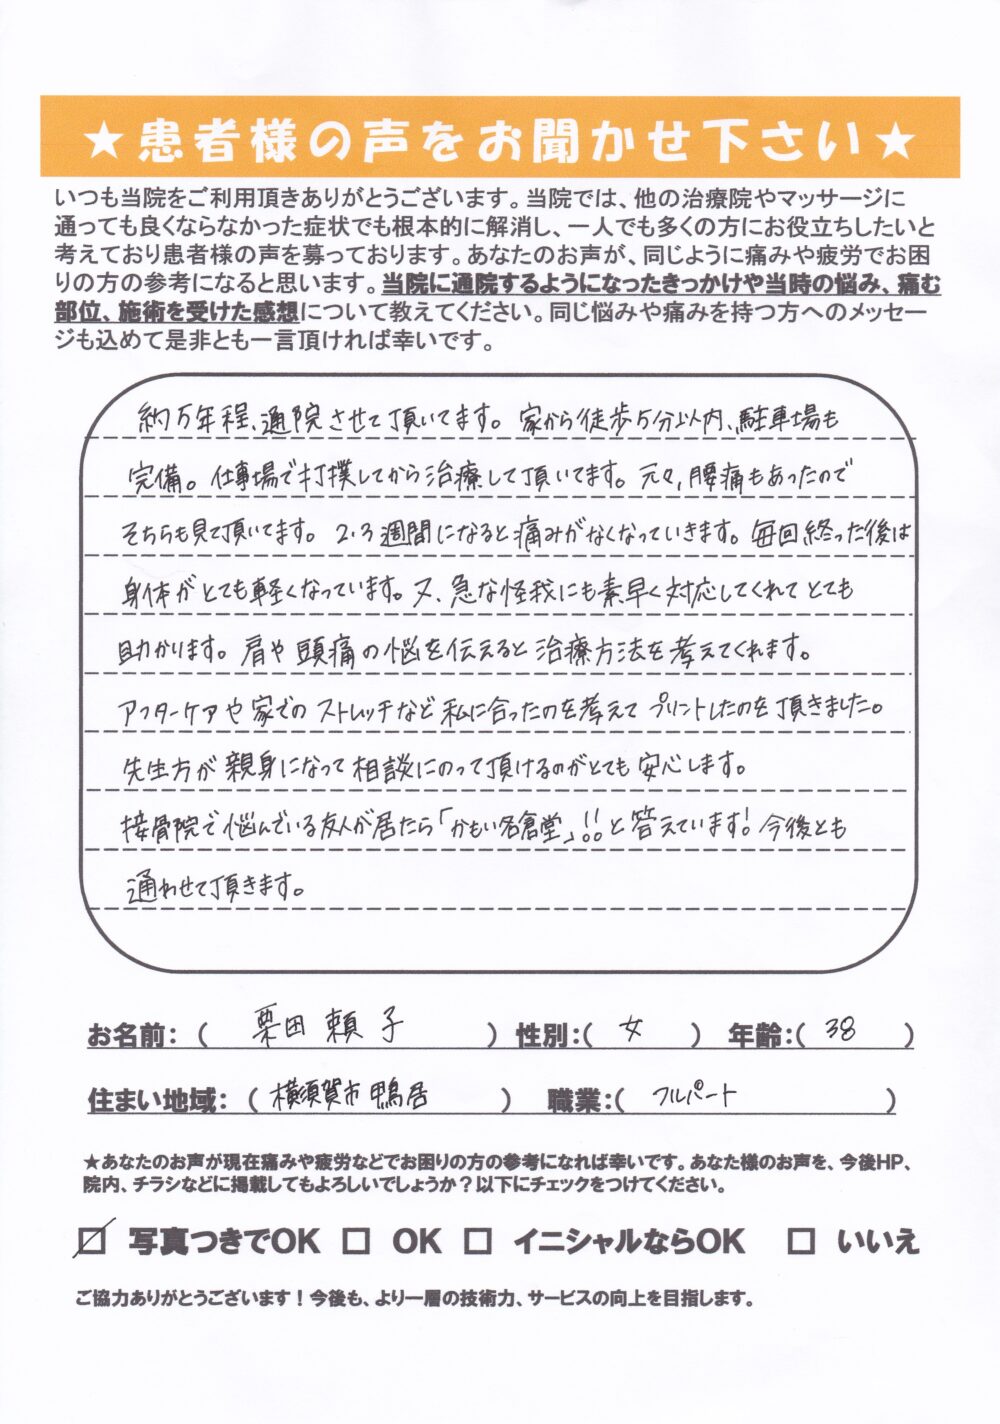 ★患者様の声をお聞かせ下さい★
いつも当院をご利用頂きありがとうございます。当院では、他の治療院やマッサージに
通っても良くならなかった症状でも根本的に解消し、一人でも多くの方にお役立ちしたいと
考えており患者様の声を募っております。あなたのお声が、同じように痛みや疲労でお困
りの方の参考になると思います。当院に通院するようになったきっかけや当時の悩み、痛む
部位、施術を受けた感想について教えてください。同じ悩みや痛みを持つ方へのメッセー
ジも込めて是非とも一言頂ければ幸いです。
約万年程、通院させて頂いてます。家から徒歩5分以内、駐車場も
完備。仕事場で打撲してから治療して頂いてます。元々、腰痛もあったので
そちらも見て頂いてます。2.3週間になると痛みがなくなっていきます。毎回終った後は
身体がとても軽くなっています。又、急な怪我にも素早く対応してくれてとても
助かります。肩や頭痛の悩を伝えると治療方法を考えてくれます。
アフターケアや家でのストレッチなど私に合ったのを考えてプリントしたのを頂きました。
先生方が親身になって相談にのって頂けるのがとても安心します。
接骨院で悩んでいる友人が居たら「かもい名倉堂」!!と答えています!今後とも
通わせて頂きます。
お名前:(栗田 頼子) 性別:(女) 年齢:(38)
住まい地域:(横須賀市鴨居) 職業:(フルパート)
★あなたのお声が現在痛みや疲労などでお困りの方の参考になれば幸いです。あなた様のお声を、今後HP、
院内、チラシなどに掲載してもよろしいでしょうか?以下にチェックをつけてください。
☑ 写真つきでOK □ OK □ イニシャルならOK □ いいえ
ご協力ありがとうございます!今後も、より一層の技術力、サービスの向上を目指します。